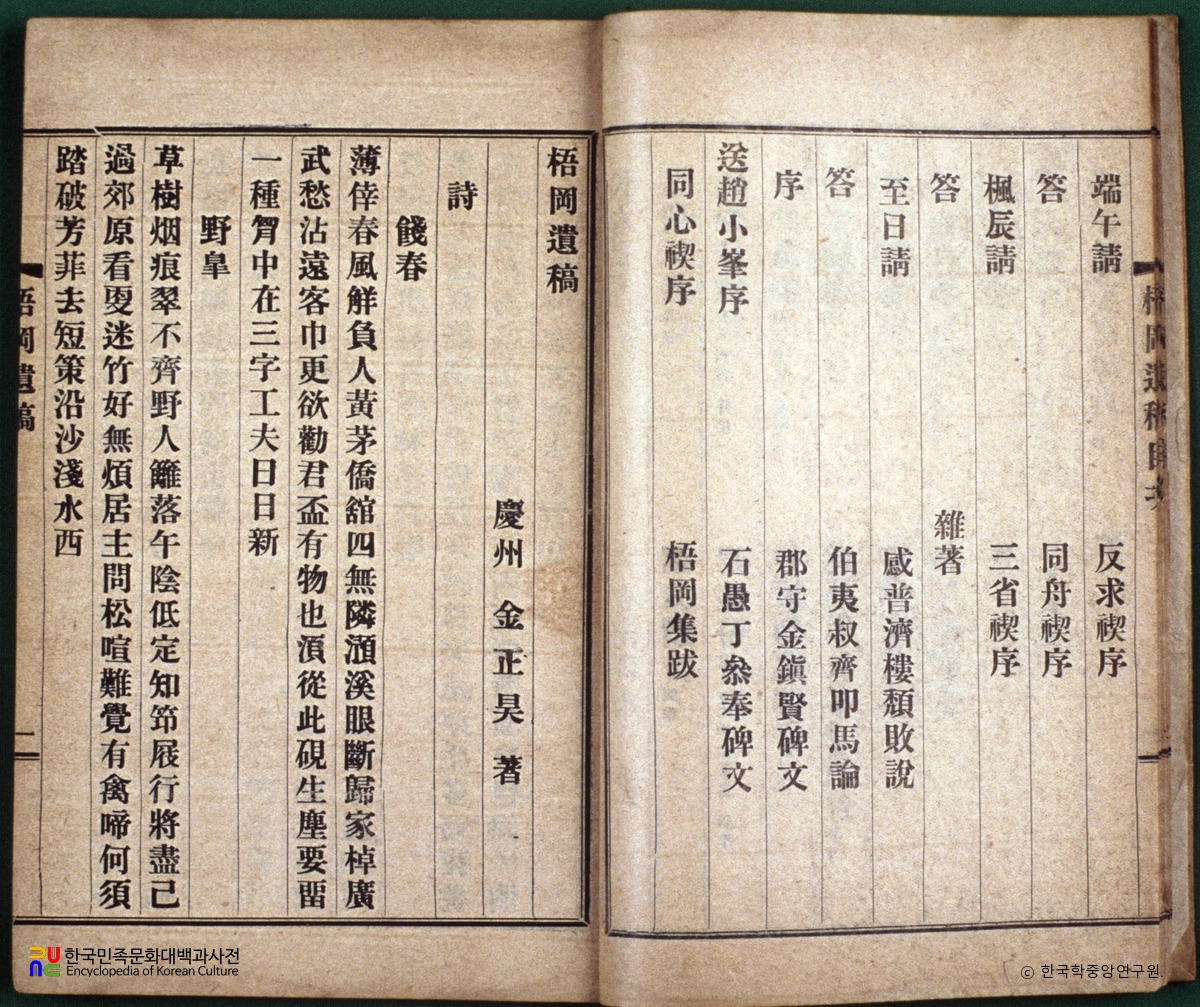 梧岡遺稿目次
端午請
答
楓辰請
答
至日請
答
序
送趙小峯序
同心禊序
反求禊序
同舟禊序
三省禊序
雜著
感普濟樓頹敗說
伯夷叔齊叩馬論
郡守金鎭賢碑文
石愚丁叅奉碑文
梧岡集跋
梧岡遺稿
慶州 金正昊 著
詩
餞春
薄倖春風鮮負人黃茅僑舘四無隣㶊溪眼斷歸家棹廣
武愁沾遠客巾更欲勸君盃有物也湏從此硯生塵要畱
一種胷中在三字工夫日日新
野臯
草樹烟痕翠不齊野人籬落午陰低定知笻屐行將盡已
過郊原看㪅迷竹好無煩居主問松喧難覺有禽啼何須
踏破芳菲去短策沿沙淺水西
梧岡遺稿
一
한국민족문화대백과사전
Encyclopedia of Korean Culture
ⓒ 한국학중앙연구원